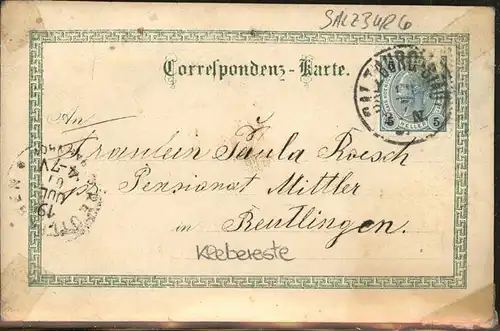 SALZBURG
Correspondenz-Karte.
SALZBURG STADT
5 HELLER 5
An
Fräulein Paula Roesch
Pensionat Mittler
in Reutlingen.
Klebereste
19
JUL